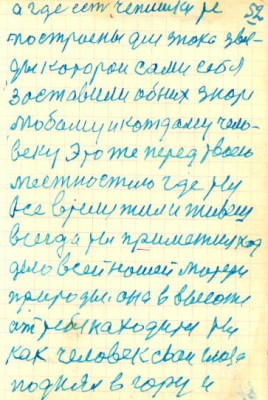 52
а где ест чепишки не
построены для знока звез-
ды которои сами себя
заставили обних знат
любому и котдому чело-
веку Это же перед твоею
местностию где мы
все время жили и живем
всегда мы приметили ход
дела всей нашей матери
природы. она в высоте
от тебя находит мы
как человек свои глаза
поднял в гору и